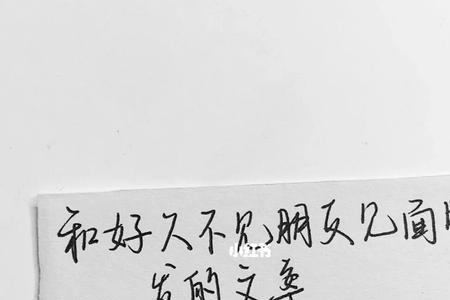 和好久不见朋友见面
小红书
发的文案